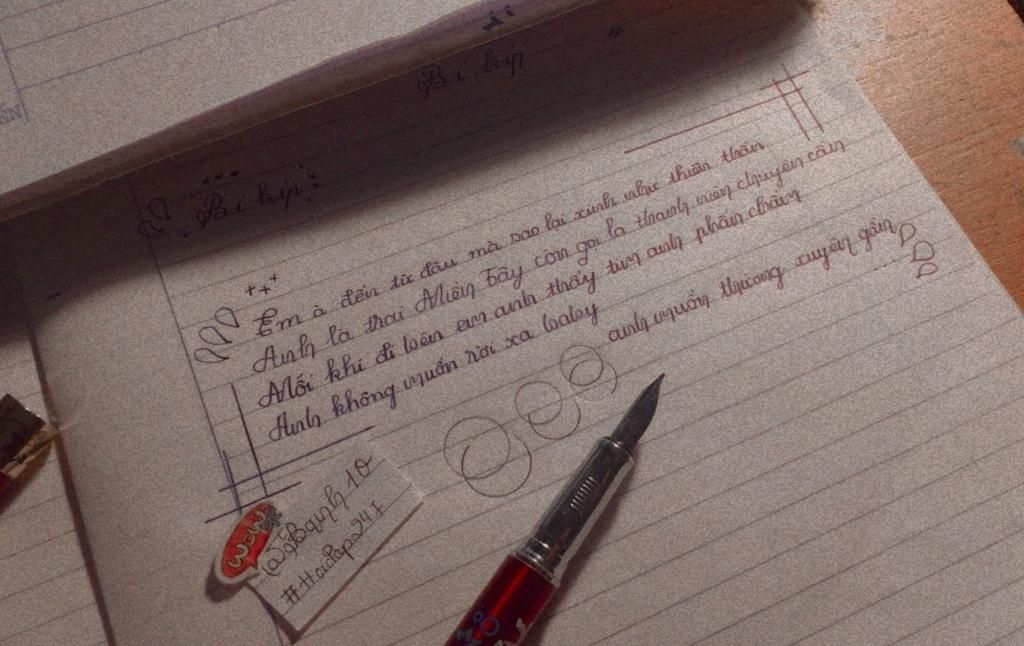 Bí kíp
Bí kíp
Em à đến từ đâu mà sao lại xinh như thiên thần
Anh là trai Miền Tây còn gọi là thanh niên chuyên cần
Mỗi khi đi bên em anh thấy tim anh phân chăm
Anh không muốn rời xa baby
anh muốn thương xuyên gần
wow
@Bquih 10
#Haidep247